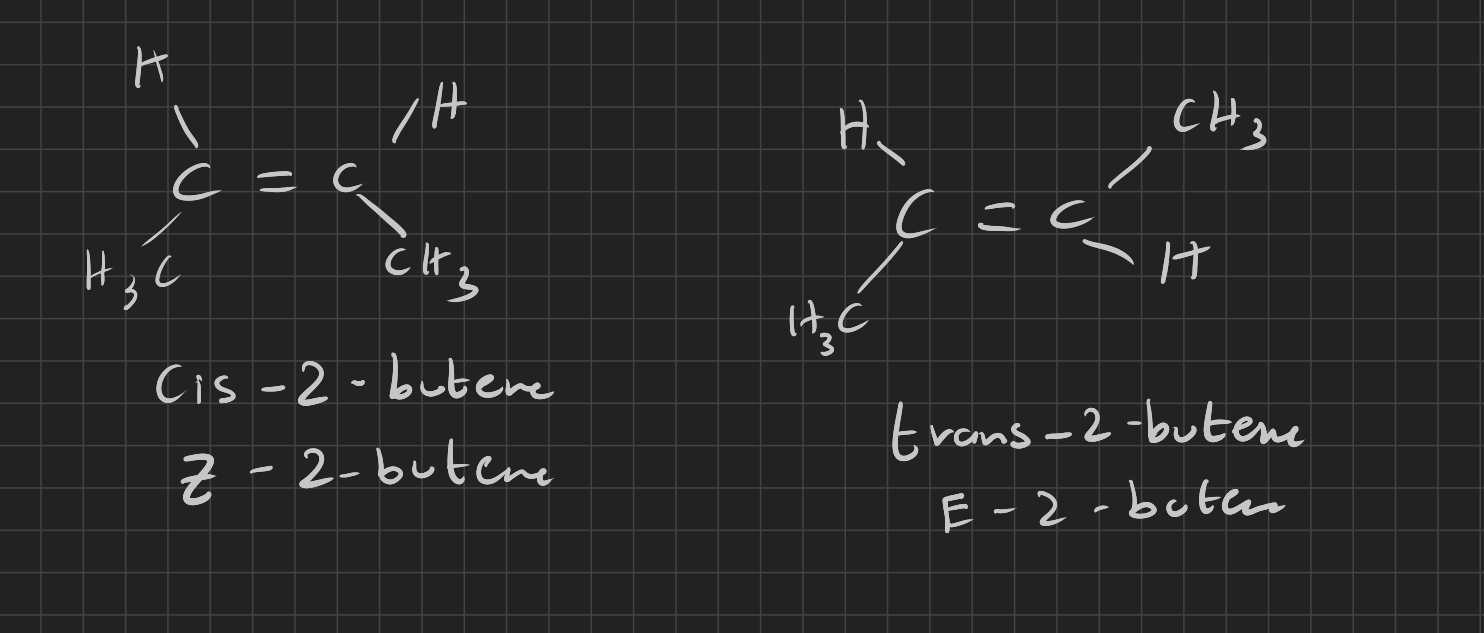 H
H
C = C
H3C
CH3
Cis - 2 - butene
Z - 2 - butene
H
CH3
C = C
H
H3C
trans - 2 - butene
E - 2 - buten